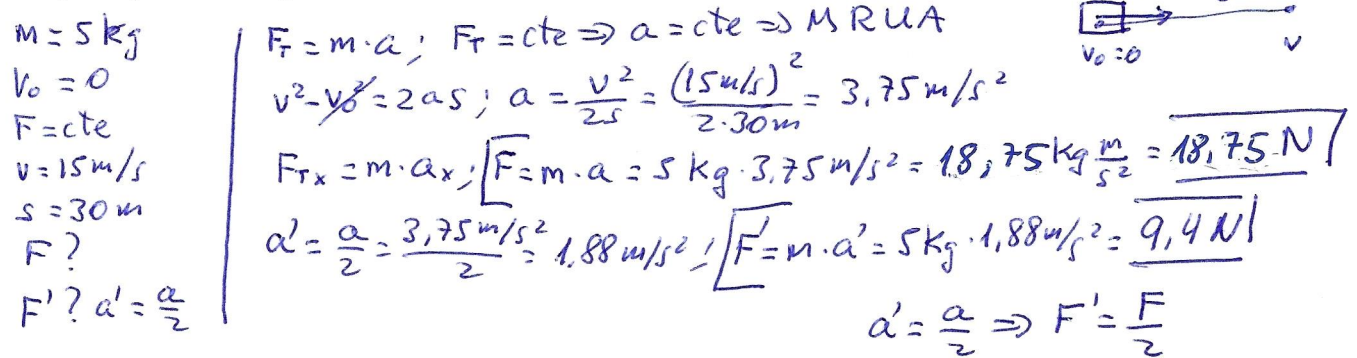 m = 5 kg
V₀ = 0
F = cte
v = 15 m/s
s = 30 m
F ?
F' ? a' = a/2
F_T = m · a ; F_T = cte ⇒ a = cte ⇒ MRUA
v² - v₀² = 2as ; a = v²/2s = (15 m/s)²/2·30m = 3,75 m/s²
F_Tx = m · a_x ; F = m · a = 5 kg · 3,75 m/s² = 18,75 kg m/s² = 18,75 N
a' = a/2 = 3,75 m/s²/2 = 1,88 m/s² ; F' = m · a' = 5 Kg · 1,88 m/s² = 9,4 N
a' = a/2 ⇒ F' = F/2
V₀ = 0
v